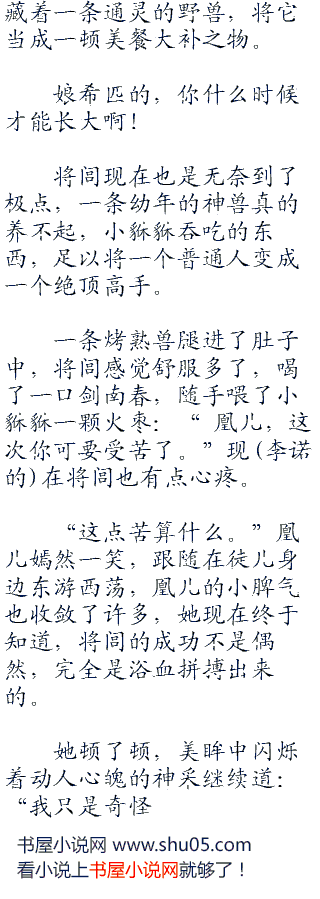 藏着一条通灵的野兽，将它
当成一顿美餐大补之物。
娘希匹的，你什么时候
才能长大啊！
将闾现在也是无奈到了
极点，一条幼年的神兽真的
养不起，小貅貅吞吃的东
西，足以将一个普通人变成
一个绝顶高手。
一条烤熟兽腿进了肚子
中，将闾感觉舒服多了，喝
了一口剑南春，随手喂了小
貅貅一颗火枣：“ 凰儿，这
次你可要受苦了。”现(李诺
的)在将闾也有点心疼。
“这点苦算什么。”凰
儿嫣然一笑，跟随在徒儿身
边东游西荡，凰儿的小脾气
也收敛了许多，她现在终于
知道，将闾的成功不是偶
然，完全是浴血拼搏出来
的。
她顿了顿，美眸中闪烁
着动人心魄的神采继续道：
“我只是奇怪
书屋小说网 www.shu05.com
看小说上书屋小说网就够了！